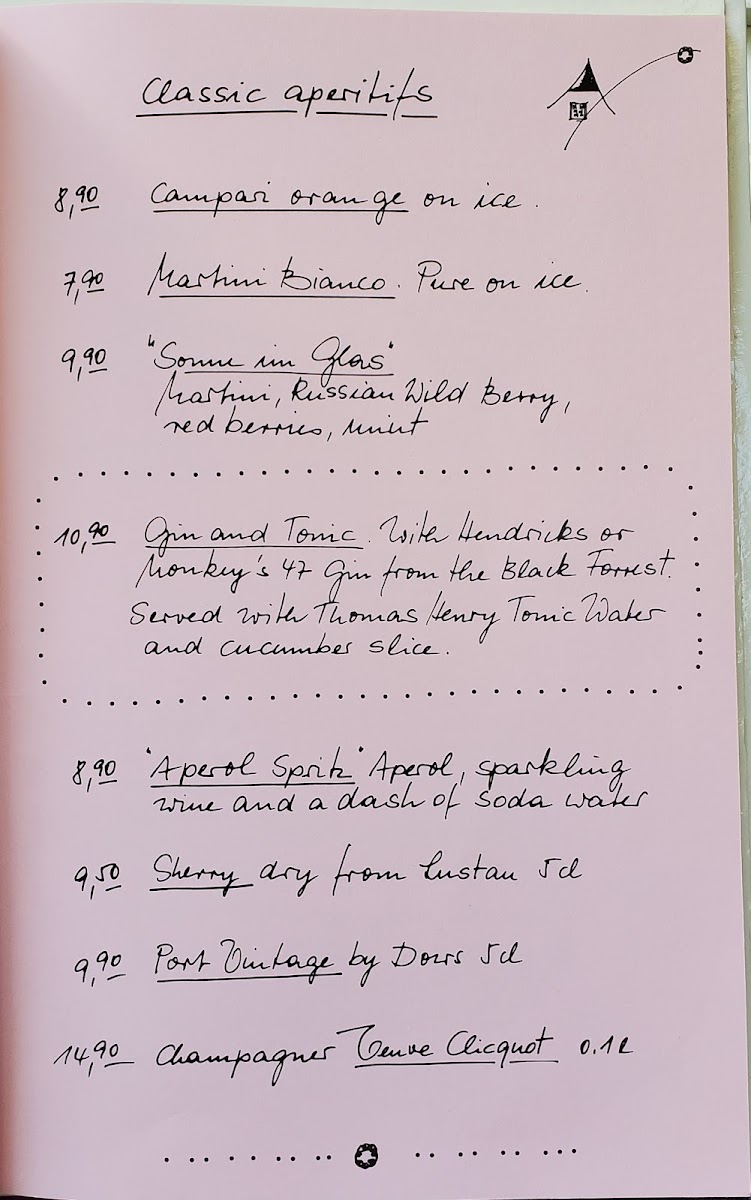 Classic aperitifs
8,90 Campari orange on ice.
7,90 Martini Bianco. Pure on ice.
9,90 "Sonne im Glas"
Martini, Russian Wild Berry,
red berries, mint
10,90 Gin and Tonic. With Hendricks or
Monkey's 47 Gin from the Black Forrest.
Served with Thomas Henry Tonic Water
and cucumber slice.
8,90 "Aperol Spritz" Aperol, sparkling
wine and a dash of soda water
9,50 Sherry dry from Lustau 5cl
9,90 Port Vintage by Dows 5cl
14,90 Champagner Veuve Clicquot 0.1l